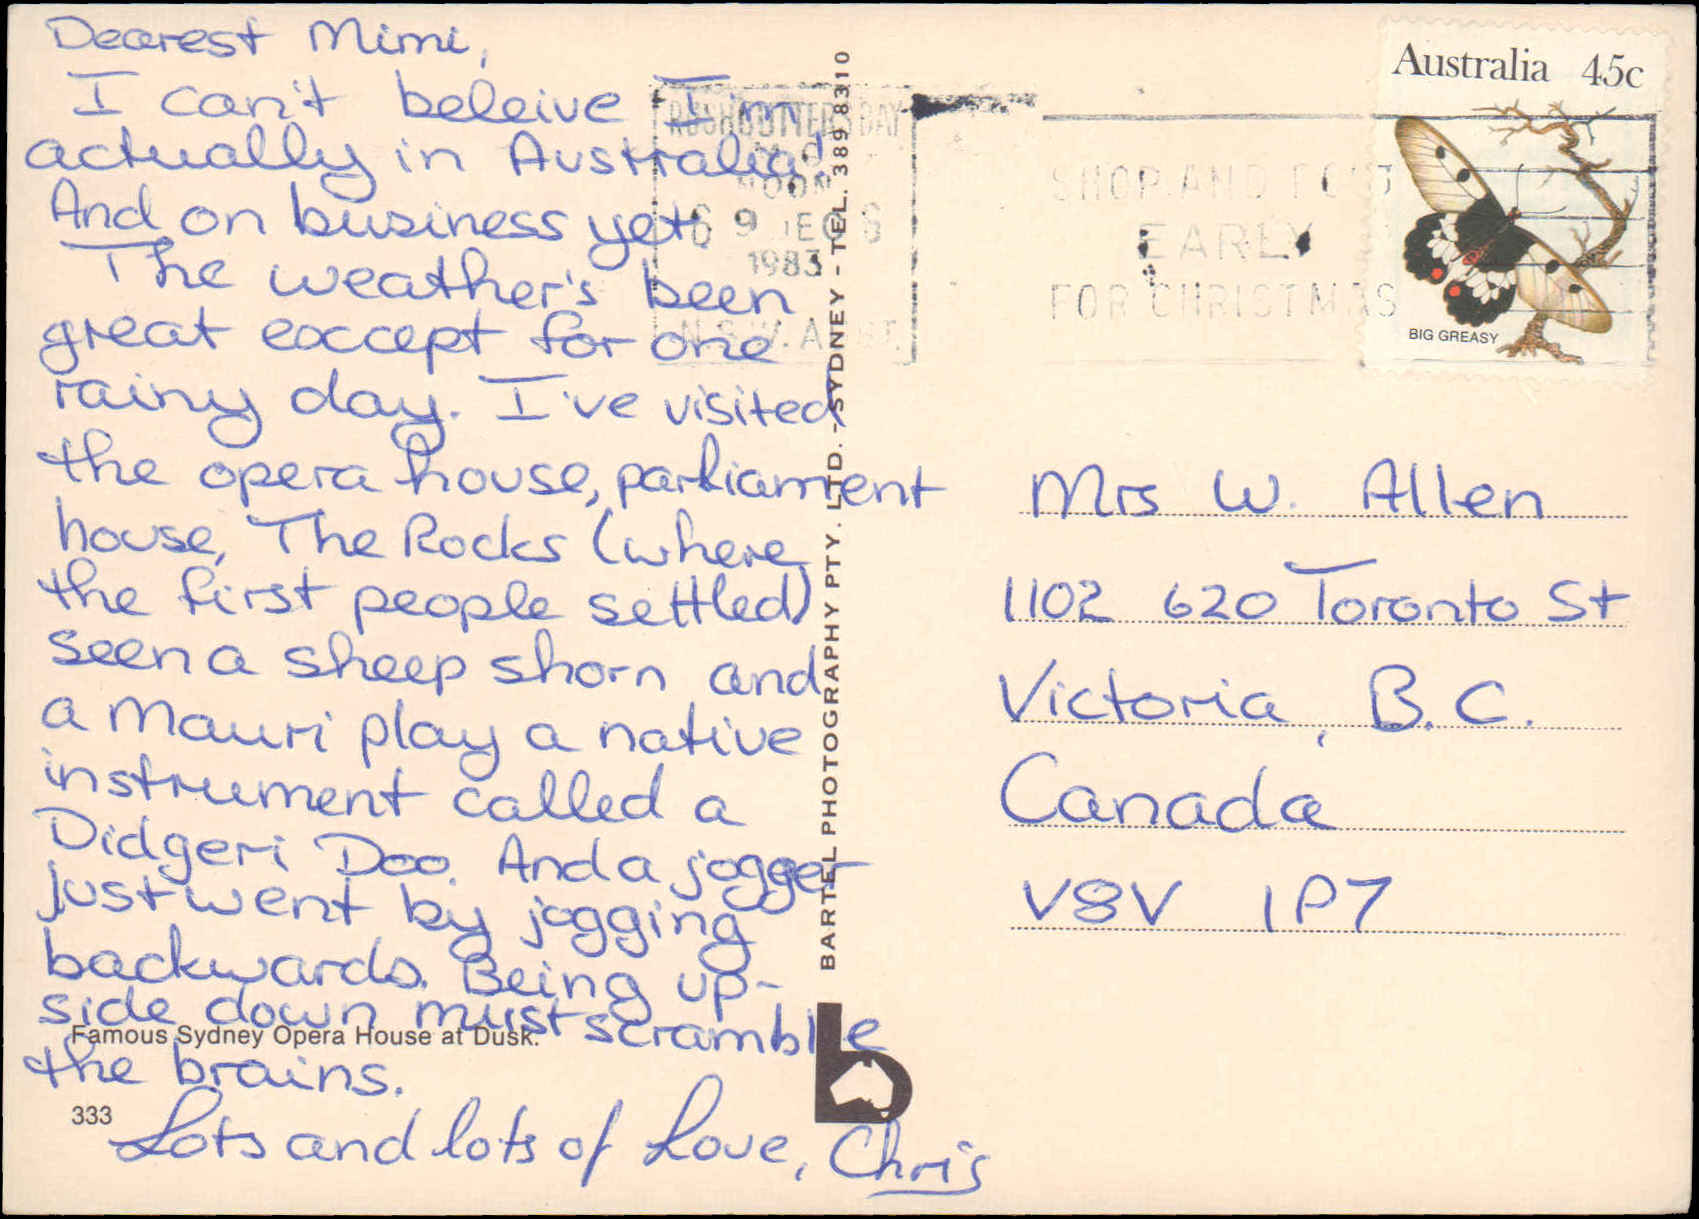 Dearest Mimi,
I can't beleive I'm
actually in Australia!
And on business yet.
The weather's been
great except for one
rainy day. I've visited
the opera house, parliament
house, The Rocks (where
the first people settled)
seen a sheep shorn and
a Mauri play a native
instrument called a
Didgeri Doo. And a jogger
just went by jogging
backwards. Being up-
side down must scramble
the brains.
Lots and lots of Love, Chris
Famous Sydney Opera House at Dusk.
333
BARTEL PHOTOGRAPHY PTY. LTD. - SYDNEY - TEL. 389 8310
b
RUSHCUTTERS BAY
NOON
9 DEC
1983
N.S.W. AUST
SHOP AND POST
EARLY
FOR CHRISTMAS
Australia 45c
BIG GREASY
Mrs W. Allen
1102 620 Toronto St
Victoria, B.C.
Canada
V8V 1P7